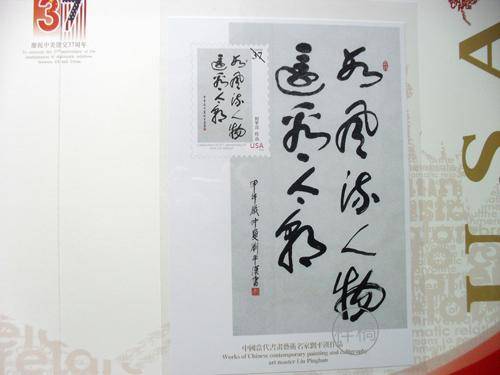 37
慶祝中美建交37周年
To celebrate the 37th anniversary of the
establishment of diplomatic relations
between US and China
數風流人物
還看今朝
USA
數風流人物
還看今朝
甲午歲仲夏劉平漢書
中國當代書畫藝術名家劉平漢作品
Works of Chinese contemporary painting and calligraphy
art master Liu Pinghan
USA